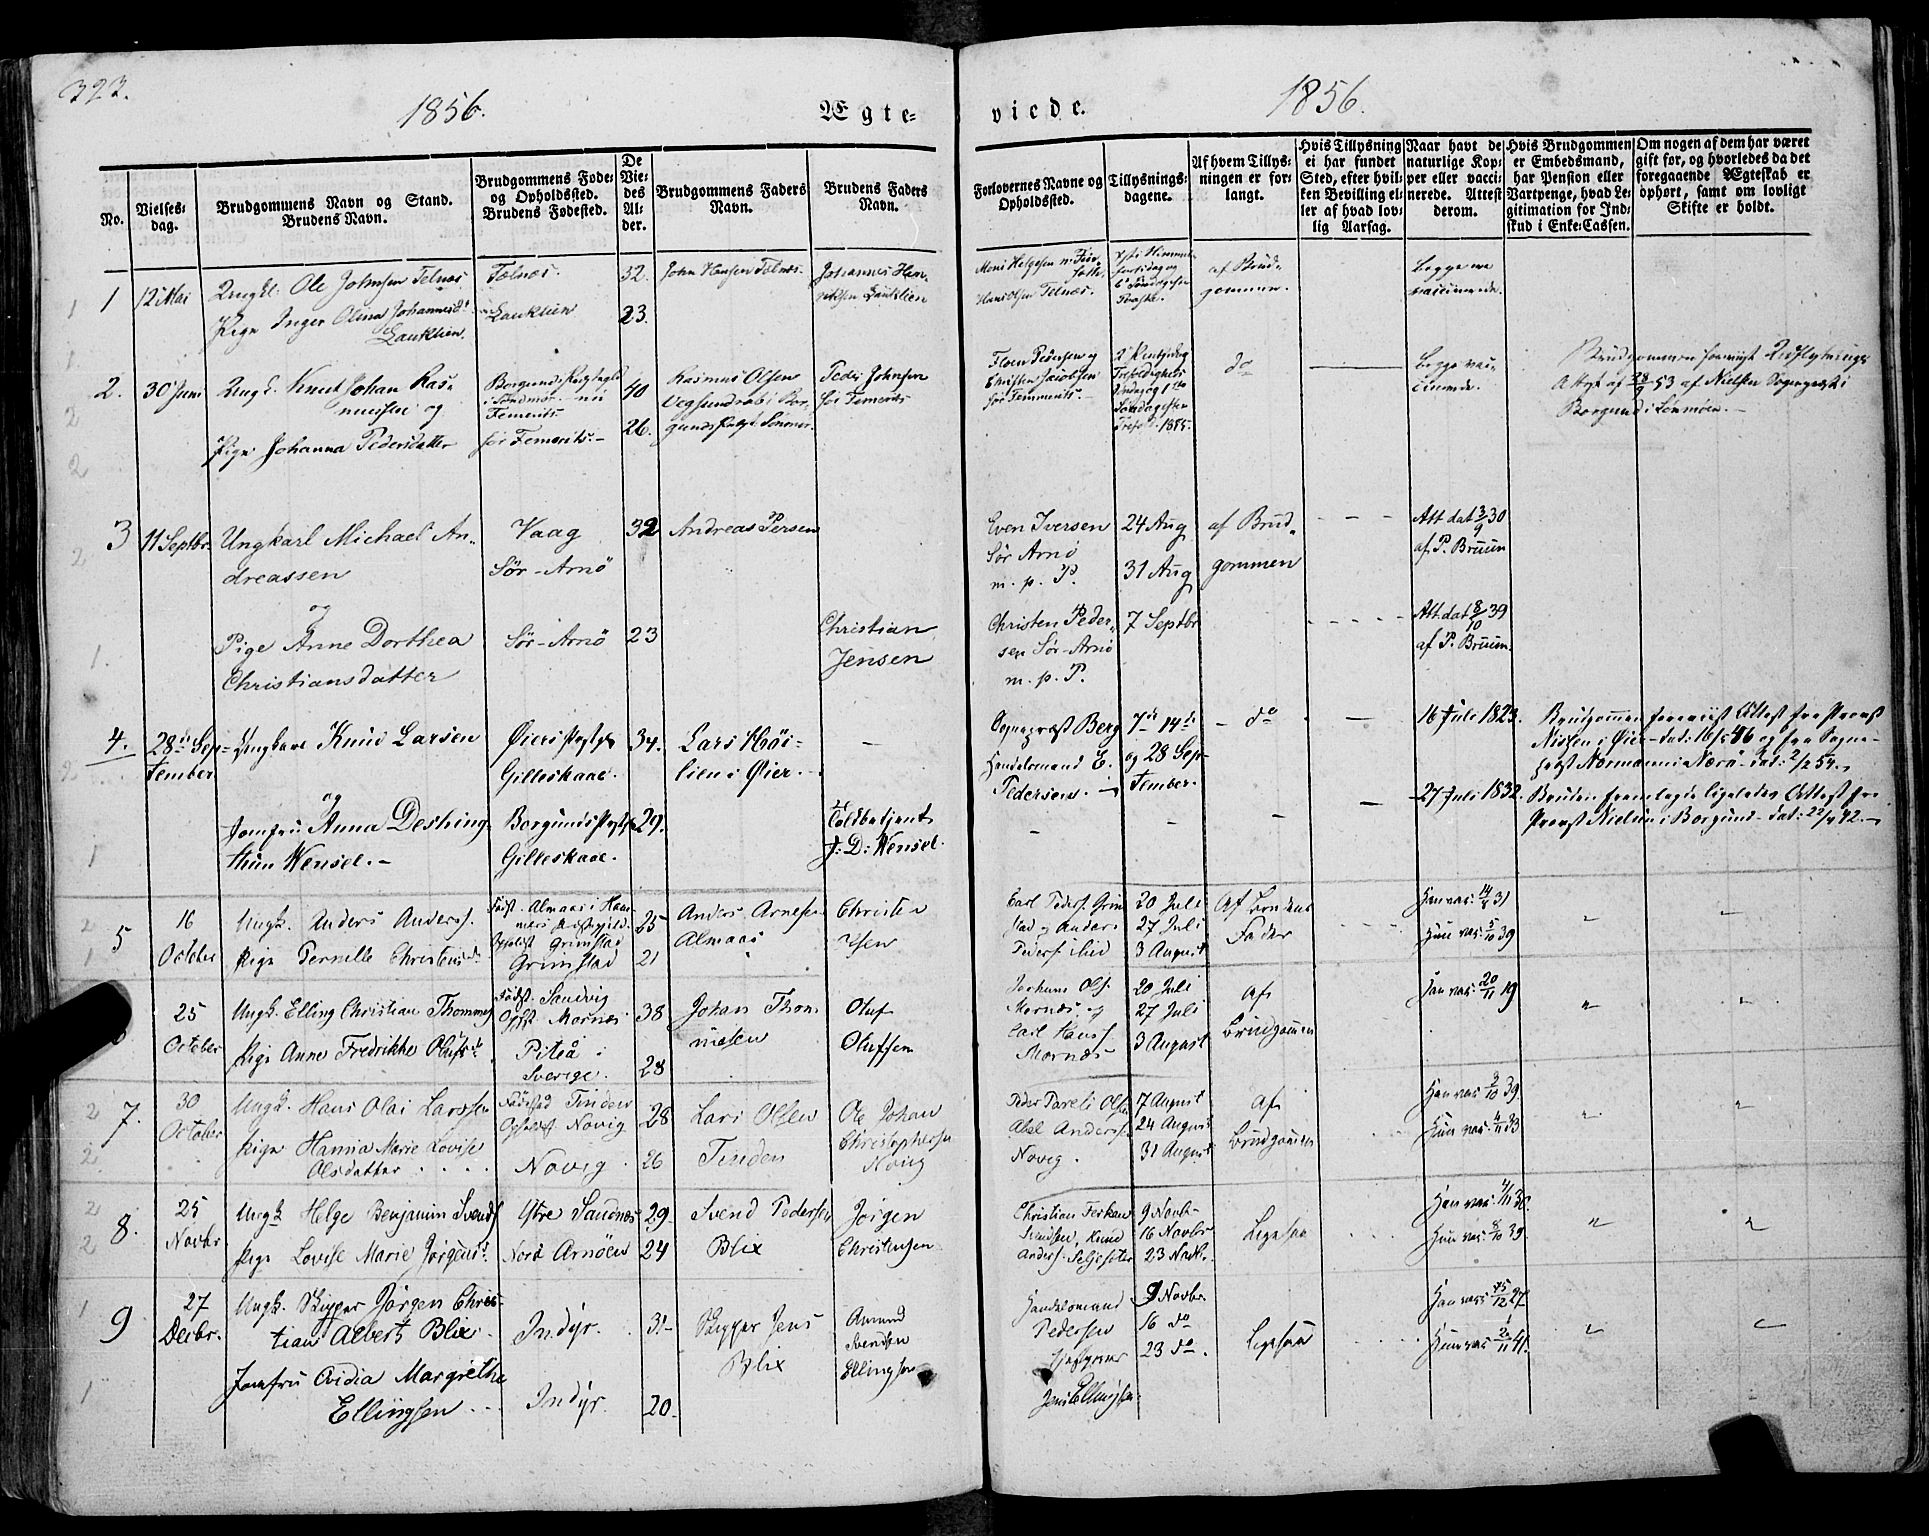 323.
1856.
Ægte-
viede.
1856.
No.
Vielses-
dag.
Brudgommens Navn og Stand.
Brudens Navn.
Brudgommens Føde-
og Opholdssted.
Brudens Fødested.
De
Vie-
des
Al-
der.
Brudgommens Faders
Navn.
Brudens Faders
Navn.
Forlovernes Navne og
Opholdssted.
Tillysnings-
dagene.
Af hvem Tillys-
ningen er for-
langt.
Hvis Tillysning
ei har fundet
Sted, efter hvil-
ken Bevilling el-
ler af hvad lov-
lig Aarsag.
Naar havt de
naturlige Kop-
per eller vacci-
nerede. Attest
derom.
Hvis Brudgommen
er Embedsmand,
har Pension eller
Vartpenge, hvad Le-
gitimation for Ind-
skud i Enke-Cassen.
Om nogen af dem har været
gift før, og hvorledes da det
foregaaende Ægteskab er
ophørt, samt om lovligt
Skifte er holdt.
1 12 Mai
Ungk. Ole Johnsen Telnæs
Pige Inger Olina Johannesd.
Lauklien.
Telnæs.
Lauklien
32.
23.
John Hansen Telnæs.
Johannes Hen-
riksen Lauklien
Hans Olsen Telnæs.
af Brud-
gommen.
Begge ere
vaccinerede.
2. 30 Juni
Ungk. Knut Johan Ras-
mussen og
Pige Johanna Pedersdatter
40
26.
Rasmus Olsen
Peder Johnsen
Christen Jacobsen
do
Begge vac-
cinerede.
Borgund i Søndmør.
3 11 Septbr.
Ungkarl Michael An-
dreassen
og
Pige Anne Dorthea
Christiansdatter
Vaag
Sør-Arnö
Sør-Arnö
32
23
Andreas Persen
Christian
Jensen
Even Iversen
Sør Arnö
m. p. P.
Christen Peder-
sen Sør-Arnö
m. p. P.
24 Aug
31 Aug
7 Septbr
af Brud-
gommen
Att. dat 3/9 30
af P. Bruun
Att. dat 8/10 39
af P. Bruun.
4. 28de Sep-
tember
Ungkarl Knud Larsen
og
Jomfru Anna Deshing-
thun Wensel.-
Øiers Præstgj.
Gilleskaal.
Borgunds Præstgj.
Gilleskaal.
34.
29.
Lars Höi-
lien i Øier.
-
Toldbetjent
J: D: Wensel.
Sognepræst Berg
Handelsmand E.
Pedersen.
7de 14de
og 28 Sep-
tember.
do
16 Juli 1823.
27 Juli 1832.
Brudgommen foreviist Attest fra Provst
Nissen i Øier dat: 16/5 46 og fra Sogne-
præst Normann i Nærø dat: 2/2 54.
Bruden fremlagde ligeledes Attest fra
Provst Nielsen i Borgund dat: 22/4 42.
5
16
October
Ungk. Anders Anderss.
Pige Pernille Christensd.
Opholdst. Grimstad
Grimstad
25
21
Anders Arnesen
Almaas
Christen
Carl Peders. Grim-
stad og Anders
Peders. Lied
20 Juli
27 Juli
3 August
Af Brudens
Fader
Han vac: 14/4 31
Hun vac: 5/10 39
25
October
Ungk. Elling Christian Thommes.
Pige Anne Fredrikke Olufsd.
Födst. Sandvig
Opst. Mornæs
Piteå i
Sverige.
38
28
Johan Thom-
mesen
Oluf
Olufsen
Mornæs og
Carl Hanss.
Mornæs
20 Juli
27 Juli
3 August
Af
Brudgommen
Han vac: 20/11 19
7.
30
October
Ungk. Hans Olai Larssen
Pige Hanna Marie Lovise
Olsdatter
Födested Tinden
Opholdst. Novig
Novig
28
26
Lars Olsen
Tinden
Ole Johan
Christophersen
Novig
Peder Pareli Olsen
Abel Anderss.
Novig.
7 August
24 August
31 August
Af
Brudgommen
Han vac: 3/10 39
Hun vac: 4/11 33
8.
25
Novbr
Ungk. Helge Benjamin Svends.
Pige Lovise Marie Jörgensd.
Ytre Sandnæs
Nord Arnöen
29
24
Svend Pedersen
Blix
Jörgen
Christensen
Christian Ferkan
Svendsen, Knud
9 Novbr
16 Novbr
23 Novbr.
Ligesaa
Hun vac: 8/10 39.
9
27
Decbr.
Ungk. Skipper Jörgen Chris-
tian Albert Blix
Jomfru Ovidia Margrethe
Ellingsen
Indyr.
Indyr.
31
20.
Skipper Jens
Blix
Amund
Svendsen
Ellingsen
Handelsmand
Pedersen
Jens Ellingsen
9 Novbr.
16 do
23 do.
Ligesaa
Han vac: 15/12 27
Hun vac: 2/11 41.